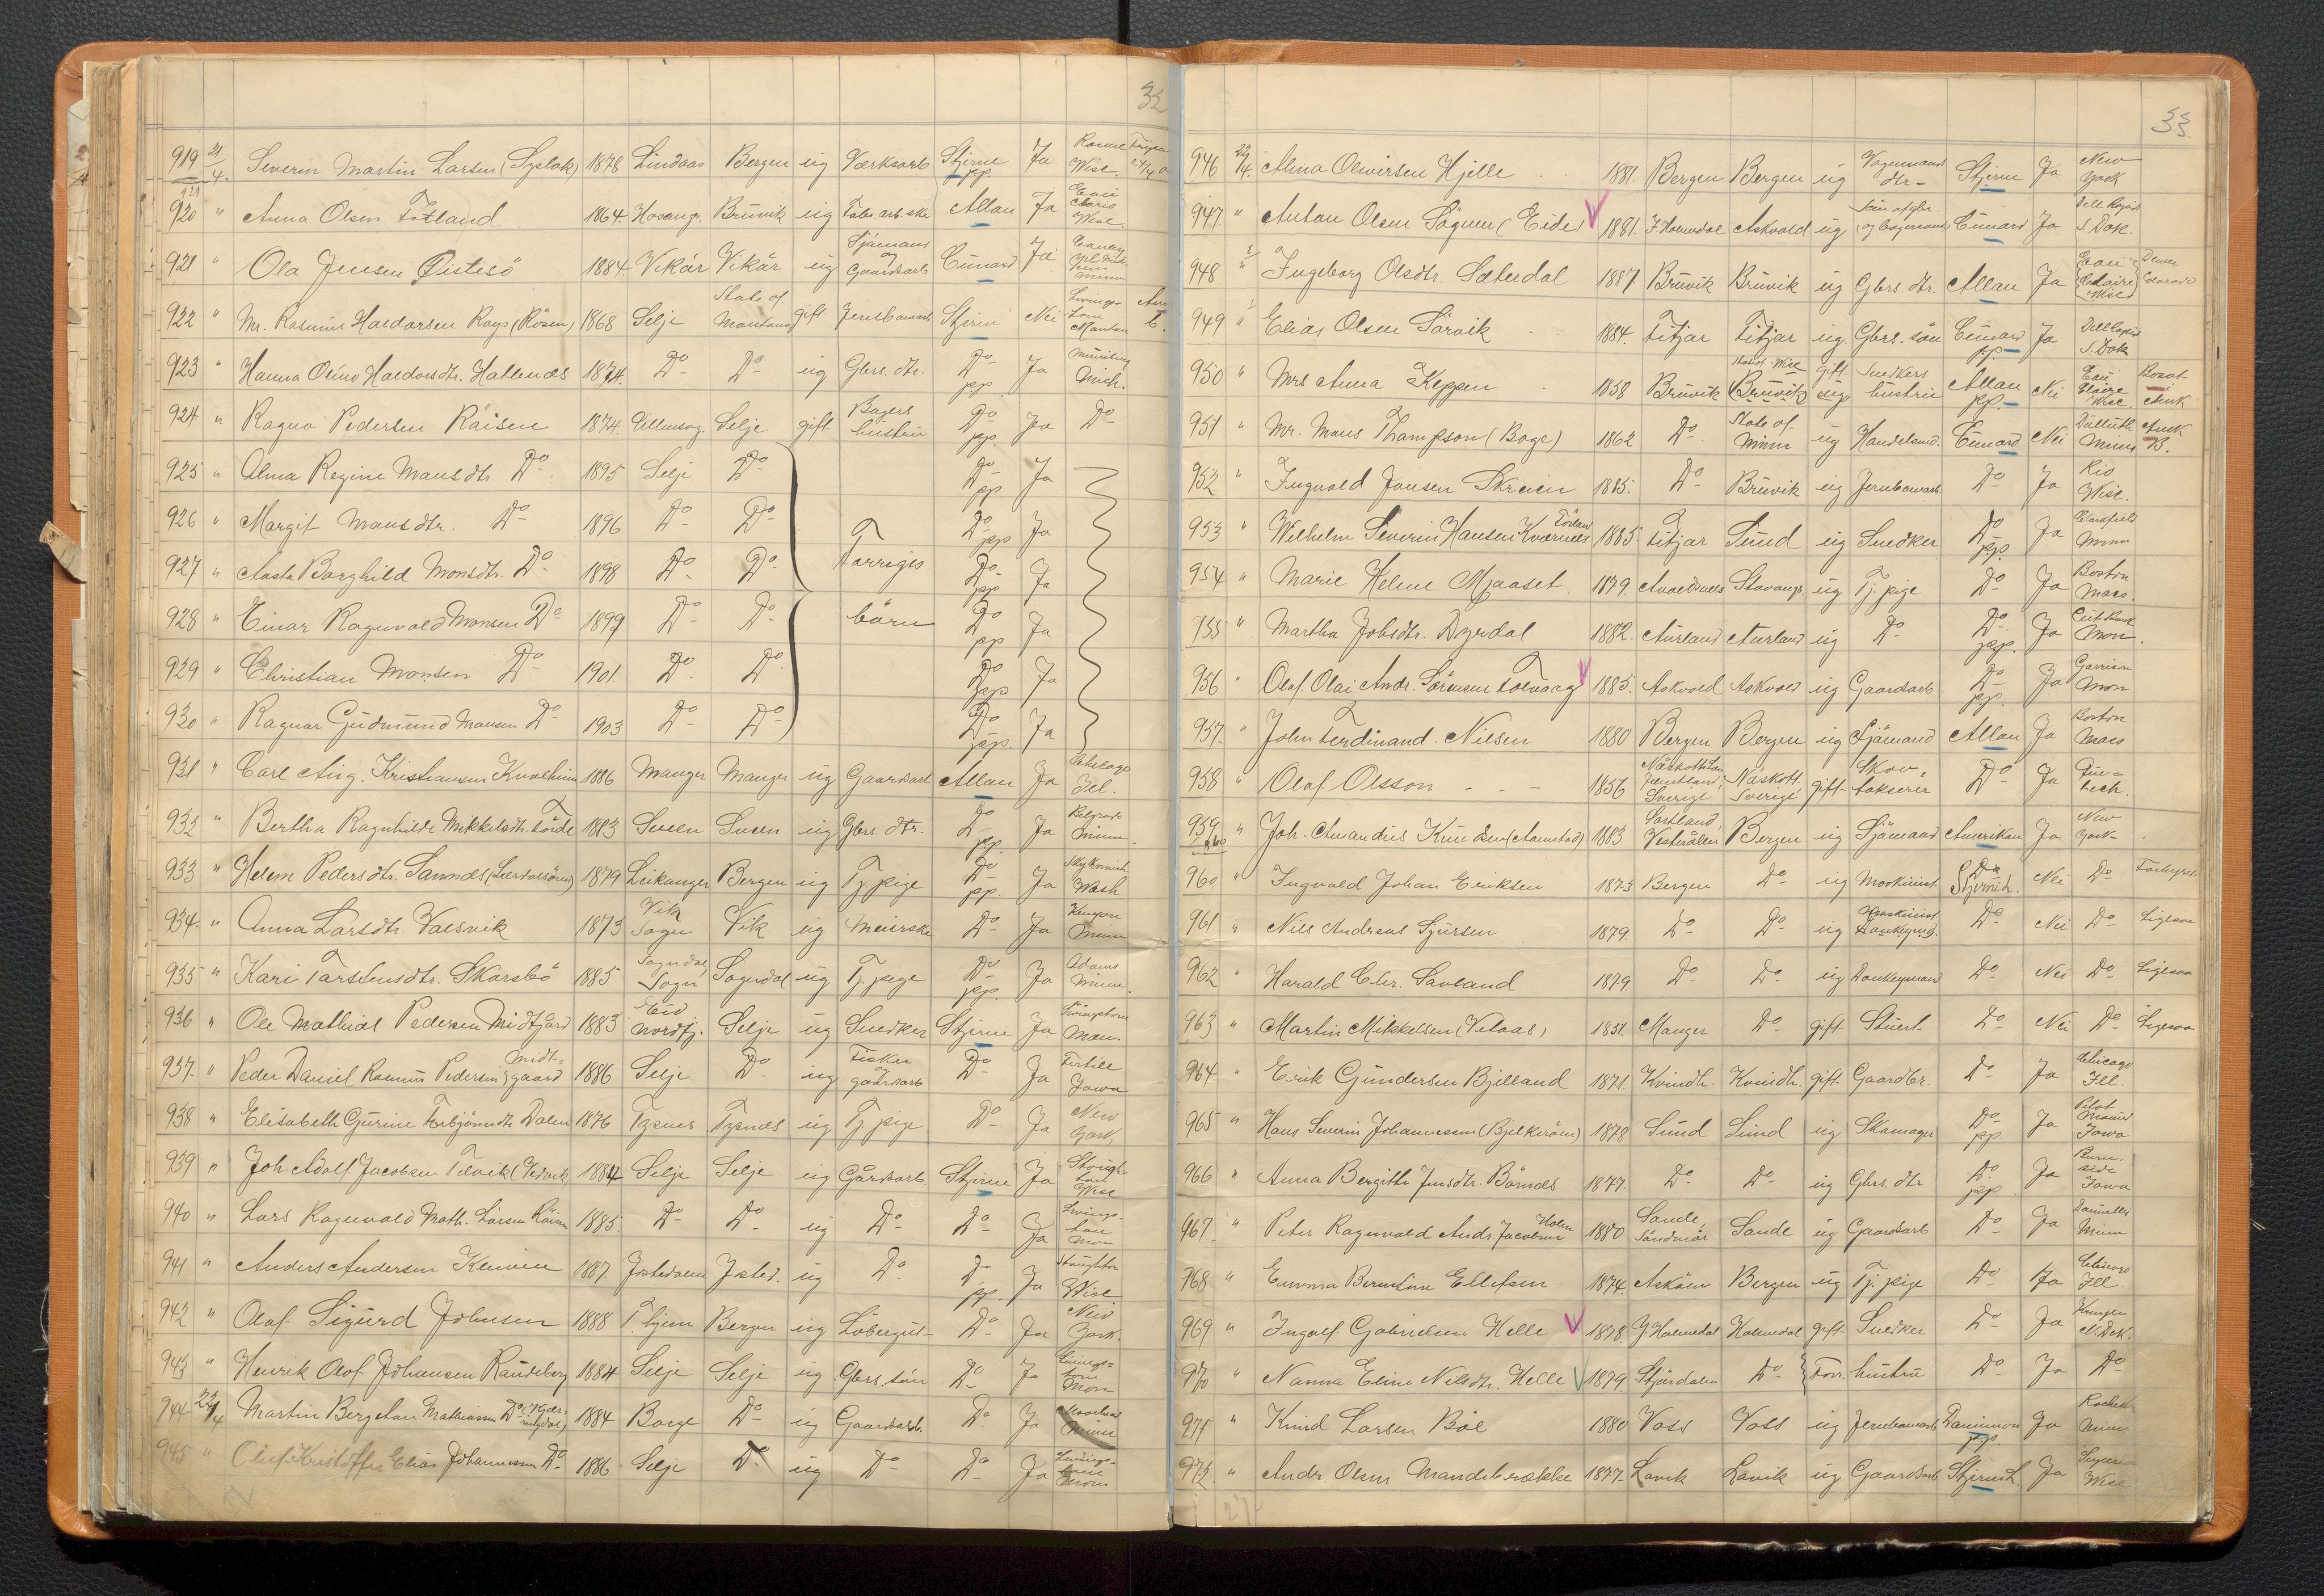 32
919 21/4. Severin Martin Larsen (Syslak) 1878 Lindaas Bergen ug Værksarb Stjerne pp. Ja Wise.
920 " Anna Olsen Fotland 1864. Hosang. Bruvik ug Allan Ja Eau Claire Wise.
921 " Ola Jensen Øistesö 1884. Vikör Vikör ug Sjömand og Gaardsarb Cunard Ja Minn
922 " Mr. Rasmus Haldorsen 1868 Selje State of Montana gift Jernbanearb Stjerne Nei Livingston Montana
923 " Hanna Oline Haldorsdtr. Hatlenes 1874. Do Do ug Gbrs. dtr. Do pp. Ja Munising Mich.
924 " Ragna Pedersen Räisen 1874. Selje gift Bagers hustru Do pp. Ja Do
925 " Alma Regine Mansdtr. Do 1895 Selje Do Do pp Ja
926 " Margit Mansdtr. Do 1896 Do Do Do pp Ja
927 " Aasta Borghild Monsdtr. Do 1898 Do Do Forriges Do pp Ja
928 " Einar Ragnvald Monsen Do 1899 Do Do börn Do pp Ja
929 " Christian Monsen Do 1901. Do Do Do pp Ja
930 " Ragnar Gudmund Monsen Do 1903 Do Do Do pp. Ja
931 " Carl Aug. Kristiansen Kvalheim 1886 Manger Manger ug Gaardsarb Allan Ja Chicago Ill.
932 " Bertha Ragnhilde Mikkelsdtr. Förde 1883 Sveen Sveen ug Gbrs. dtr. Do pp. Ja Belgrade Minn.
933 " Helene Pedersdtr. Samnæs (Lærdalsören) 1879 Leikanger Bergen ug Tj. pige Do pp. Ja Wash.
934. " Anna Larsdtr. Valsvik 1873 Vik Sogn Vik ug Meierske Do Ja Kenyon Minn
935 " Kari Torstensdtr. Skarsbö 1885 Sogndal, Sogn Sogndal ug Tj. pige Do pp. Ja Adams Minn.
936 " Ole Mathias Pedersen Midtgård 1883 Eid Nordfj. Selje ug Snedker Stjerne Ja Livingston Mon.
937. " Peder Daniel Rasmus Pedersen Midtgaard 1886 Selje Do ug Fisker og gaardsarb Do Ja Fertile Iowa
938 " Elisabeth Gurine Torbjörnsdtr Dalen 1876 Tysnes Tysnæs ug Tj. pige Do Ja New York,
939 " Joh. Adolf Jacobsen 1884 Selje Selje ug Gårdsarb. Stjerne Ja Stoughton Wise
940 " Lars Ragnvald Math. Larsen Räisen 1885. Do Do ug Do Do Ja Livingston Mon
941 " Anders Andersen Kleiven 1887 Jostedalen Josted. ug Do Do pp. Ja Stoughton Wise
942 " Olaf Sigurd Johnsen 1888 T.hjem Bergen ug Löbergut Do Ja New York.
943 " Henrik Olaf Johansen Raudeberg 1884 Selje Selje ug Gbrs. sön Do Ja Livingstone Mon
944 22/4 Martin Bergeton Mathiassen Do 1884 Borge Do ug Gaardsarb. Do Ja Moorhead Minn
945 " Oluf Kristoffer Elias Johannessen Do 1886 Selje Do ug Do Do Ja Livingstone Mon
33.
946 22/4. Alma Oliversen Hjelle 1881. Bergen Bergen ug Vognmands dtr Stjerne Ja New York
947. " Anton Olsen Sögnen (Eide) 1881. Y. Holmedal Askvold ug Cunard Ja Dell Rapids S. Dak.
948. " Ingeborg Olsdtr. Sæterdal 1887 Bruvik Bruvik ug Gbrs. dtr. Allan Ja (Eau Claire Wise) Denver Colorado
949 " Elias Olsen Sörvik 1884. Fitjar Fitjar ug. Gbrs. sön Cunard pp Ja Dell Rapids S. Dak
950 " Mrs Anna Keppen 1858 Bruvik State of Wise (Bruvik) gift ug Snedkers hustru Allan pp. Nei Eau Claire Wise. Bosat Amk
951 " Mr. Mons Thompson (Boge) 1862 Do State of Minn ug Handelsmd. Cunard Nei Duluth Minn Amk B.
952 " Ingvald Jansen Skreien 1885. Do Bruvik ug Jernbanearb. Do Ja Rio Wise.
953 " Wilhelm Severin Hansen Kværnnes 1885 Fitjar Sund ug Snedker Do pp. Ja Clarkfield Minn
954 " Marie Helene Mjaaset 1879. Avaldsnes Stavanger ug Tj. pige Do Ja Boston Mass.
955 " Martha Johsdtr. Dyrdal 1882. Aurland Aurland ug Do Do pp. Ja Cut Bank Mon.
956 " Olaf Olai Andr. Sörensen Folevaag 1885. Askvold Askvold ug Gaardsarb Do pp. Ja Garrison Mon
957. " John Ferdinand Nilsen 1880 Bergen Bergen ug Sjömand Allan Ja Boston Mass
958 " Olof Olsson 1856 Näskott Jemtland, Sverige Näskott Sverige gift Skovtakserer Do Ja Quebech.
959 " Joh. Amandus Knudsen (Aamstad) 1883 Sortland Vesterålen Bergen ug Sjömand Amerikan Ja New York
960 " Ingvald Johan Eriksen 1873 Bergen Do ug Maskinist Do Nei Do Forhyret
961 " Nils Andreas Sjursen 1879. Do Do ug Donkeymd. Do Nei Do Ligesaa
962 " Harald Chr. Savland 1879 Do Do ug Donkeymand Do Nei Do Ligesaa
963 " Martin Mikkelsen (Vetaas) 1851. Manger Do gift Stuert Do Nei Do Ligesaa
964 " Erik Gundersen Bjelland 1871. Kvindh. Kvindh. gift Gaardbr. Do Ja Chicago Ill.
965 " Hans Severin Johannessen (Bjelkeröen) 1878 Sund Sund ug Skomager Do pp Ja Pilot Mound Iowa
966 " Anna Bergithe Jensdtr. Börnæs 1877. Do Do ug Gbrs. dtr Do pp Ja Burnside Iowa
967. " Peter Ragnvald Andr. Jacobsen Holen 1880 Sande, Söndmör Sande ug Gaardsarb Do Ja Minn
968 " Emma Berntine Ellefsen 1874. Asköen Bergen ug Tj. pige Do Ja Chicago Ill
969 " Ingolf Gabrielsen Helle 1878. Y. Holmedal Holmedal gift Snedker Do Ja N. Dak.
970 " Nanna Eline Nilsdtr. Helle 1879. Stjördalen Do Forr. hustru Do Ja Do
971 " Knud Larsen Böe 1880 Voss Voss ug Jernbanearb Dominion pp. Ja Minn
972. " Andr. Olsen Mandsbrække 1877. Lavik Lavik ug Gaardsarb Ja Wise